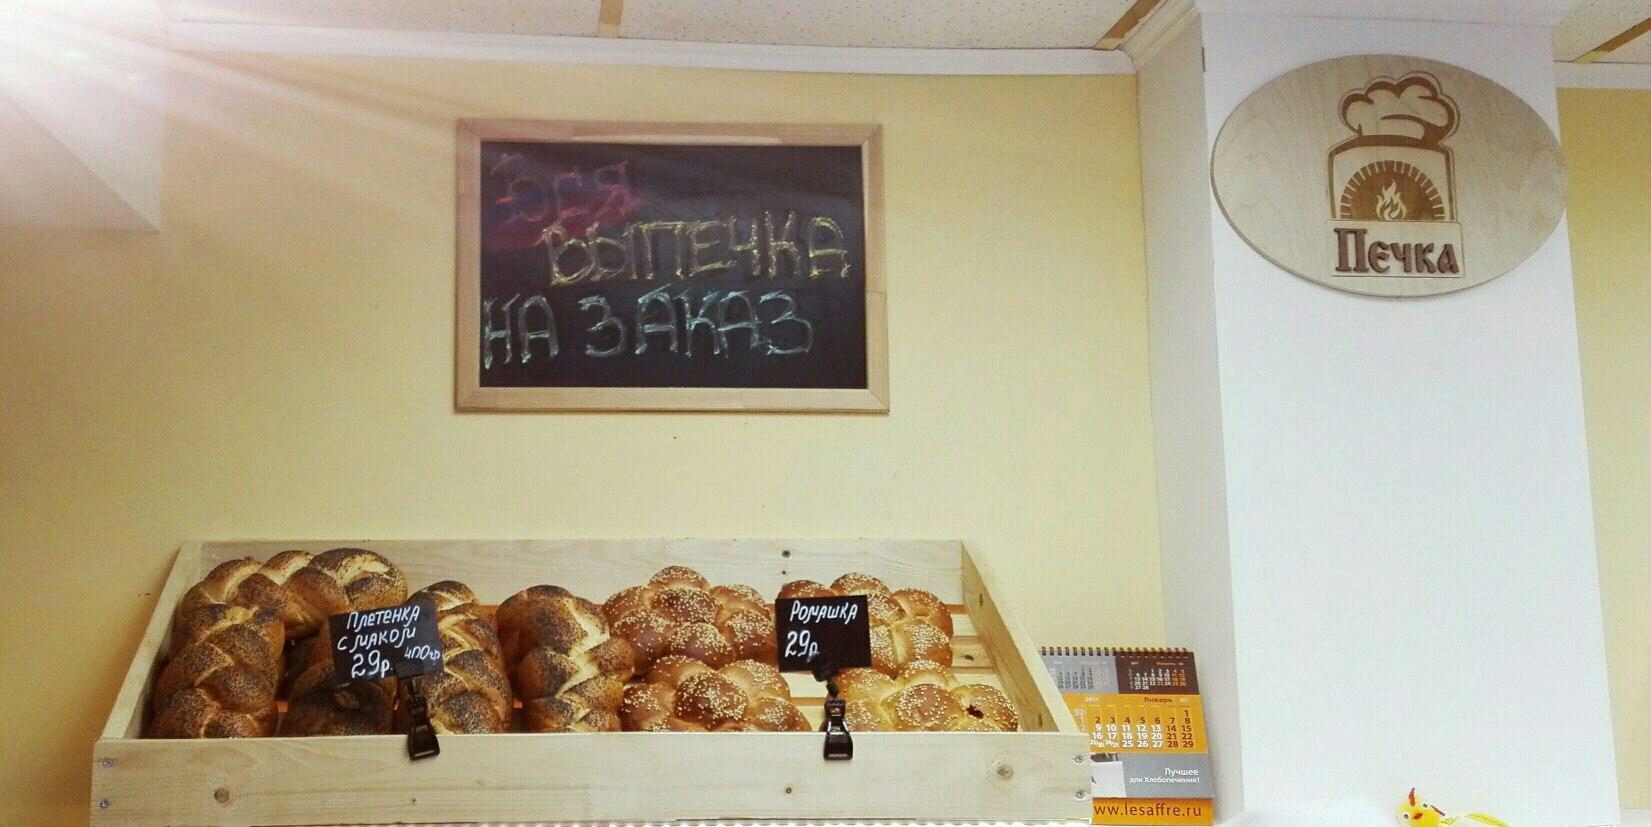 Вся
ВЫПЕЧКА
НА ЗАКАЗ
Печка
Плетенка
с маком
29р. 400гр
Ромашка
29р
2017 Январь 01
52 1
2 3 4 5 6 7 8
9 10 11 12 13 14 15
16 17 18 19 20 21 22
23/30 24/31 25 26 27 28 29
Лучшее
для Хлебопечения!
www.lesaffre.ru